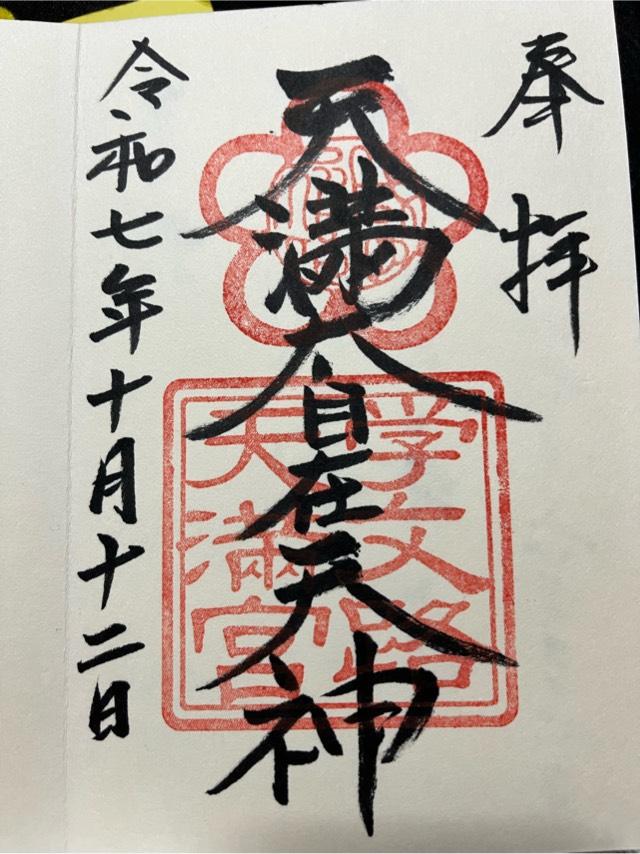 奉拝
天満大自在天神
学文路
天満宮
令和七年十月十二日